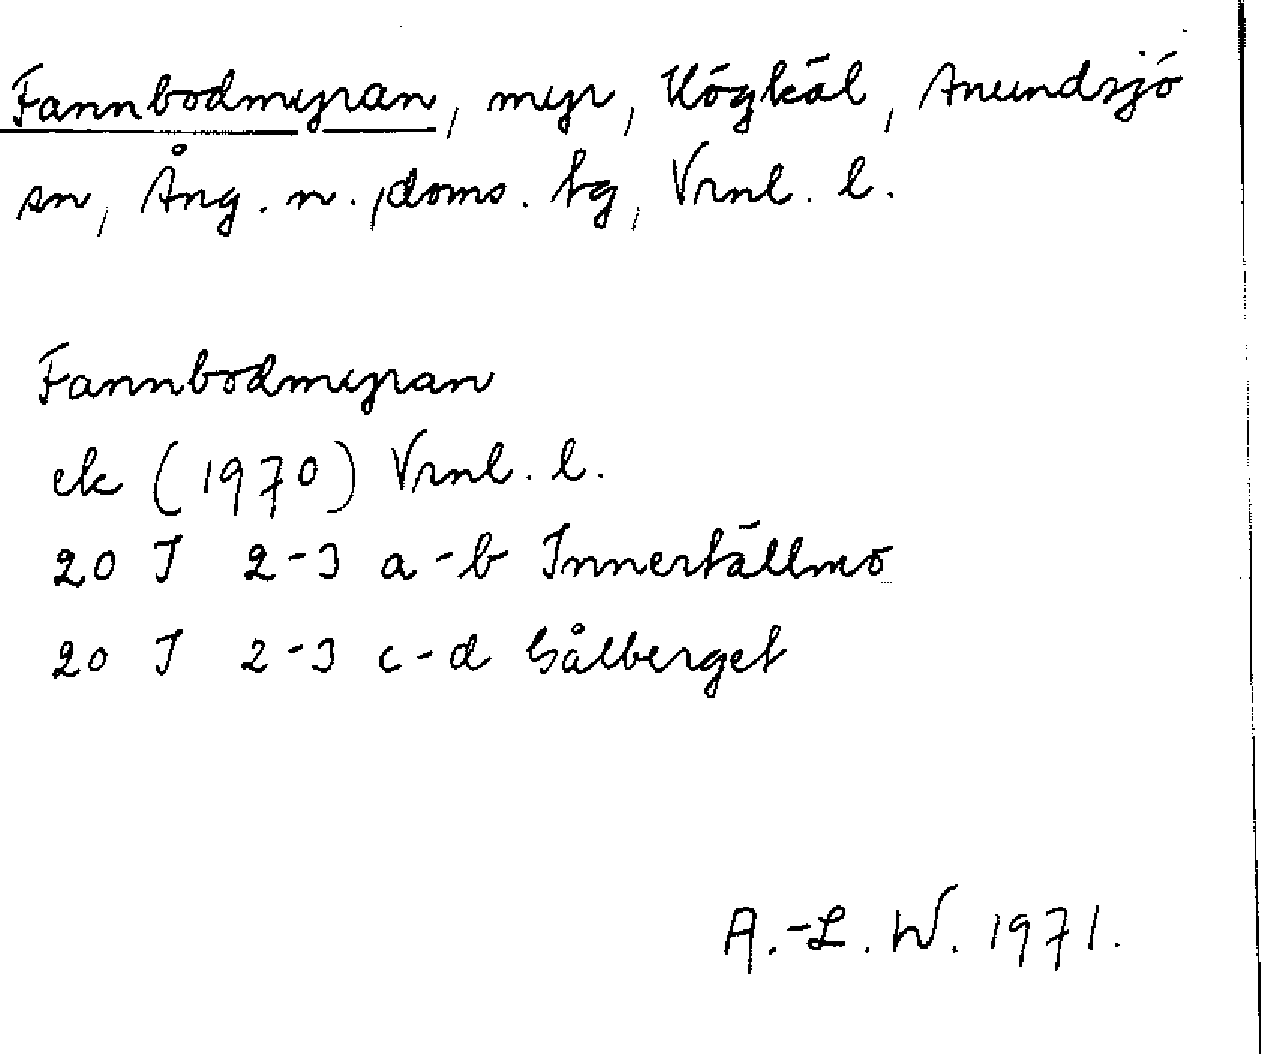 Fannbodmyran, myr, Högkäl, Anundsjö
sn, Ång. n. doms. tg, Vrnl. l.
Fannbodmyran
ek (1970) Vrnl. l.
20 I 2-3 a-b Innertällmo
20 I 2-3 c-d Gålberget
A.-L. W. 1971.